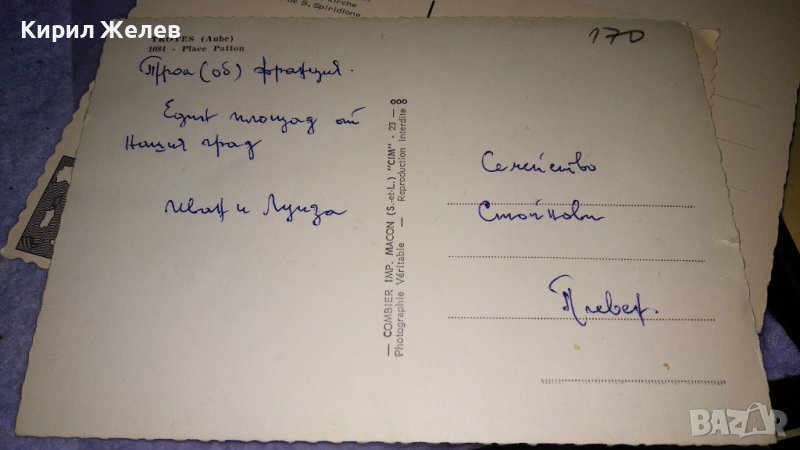 Кирил Желев
de S. Spiridione
TROYES (Aube)
1084 - Place Patton
170
Троа (об) франция.
Един площад от
нашия град
Иван и Луиза
— COMBIER IMP. MACON (S.-et-L.) "CIM" - 23 —
Photographie Véritable — Reproduction Interdite
Семейство
Стойнови
Плевен.
BAZAR